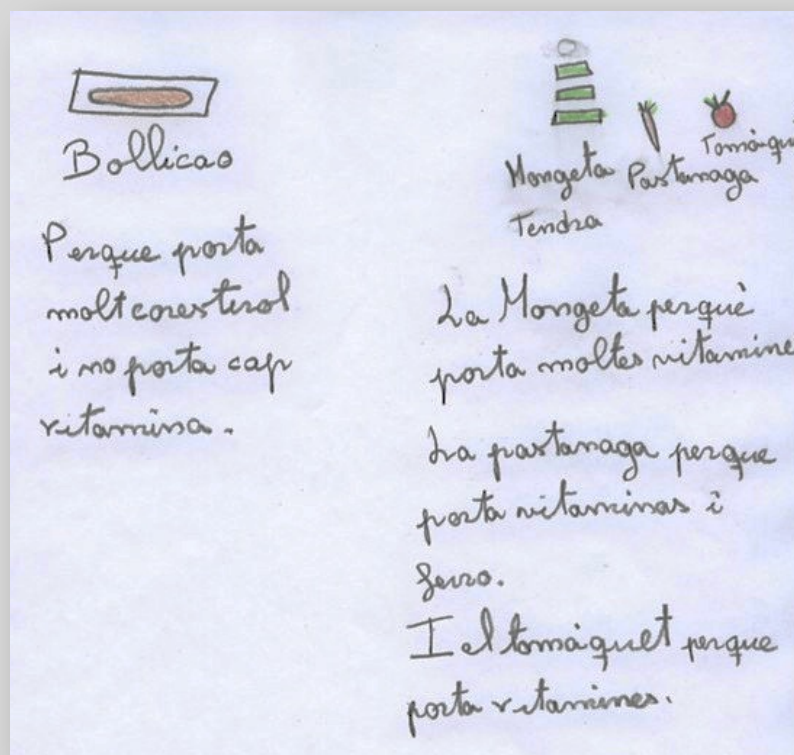 Bollicao
Perque porta
molt coresterol
i no porta cap
vitamina.
Mongeta
Tendra
Pastanaga
Tomàqu
La Mongeta perquè
porta moltes vitamine
La pastanaga perque
porta vitaminas i
ferro.
I el tomàquet perque
porta vitamines.